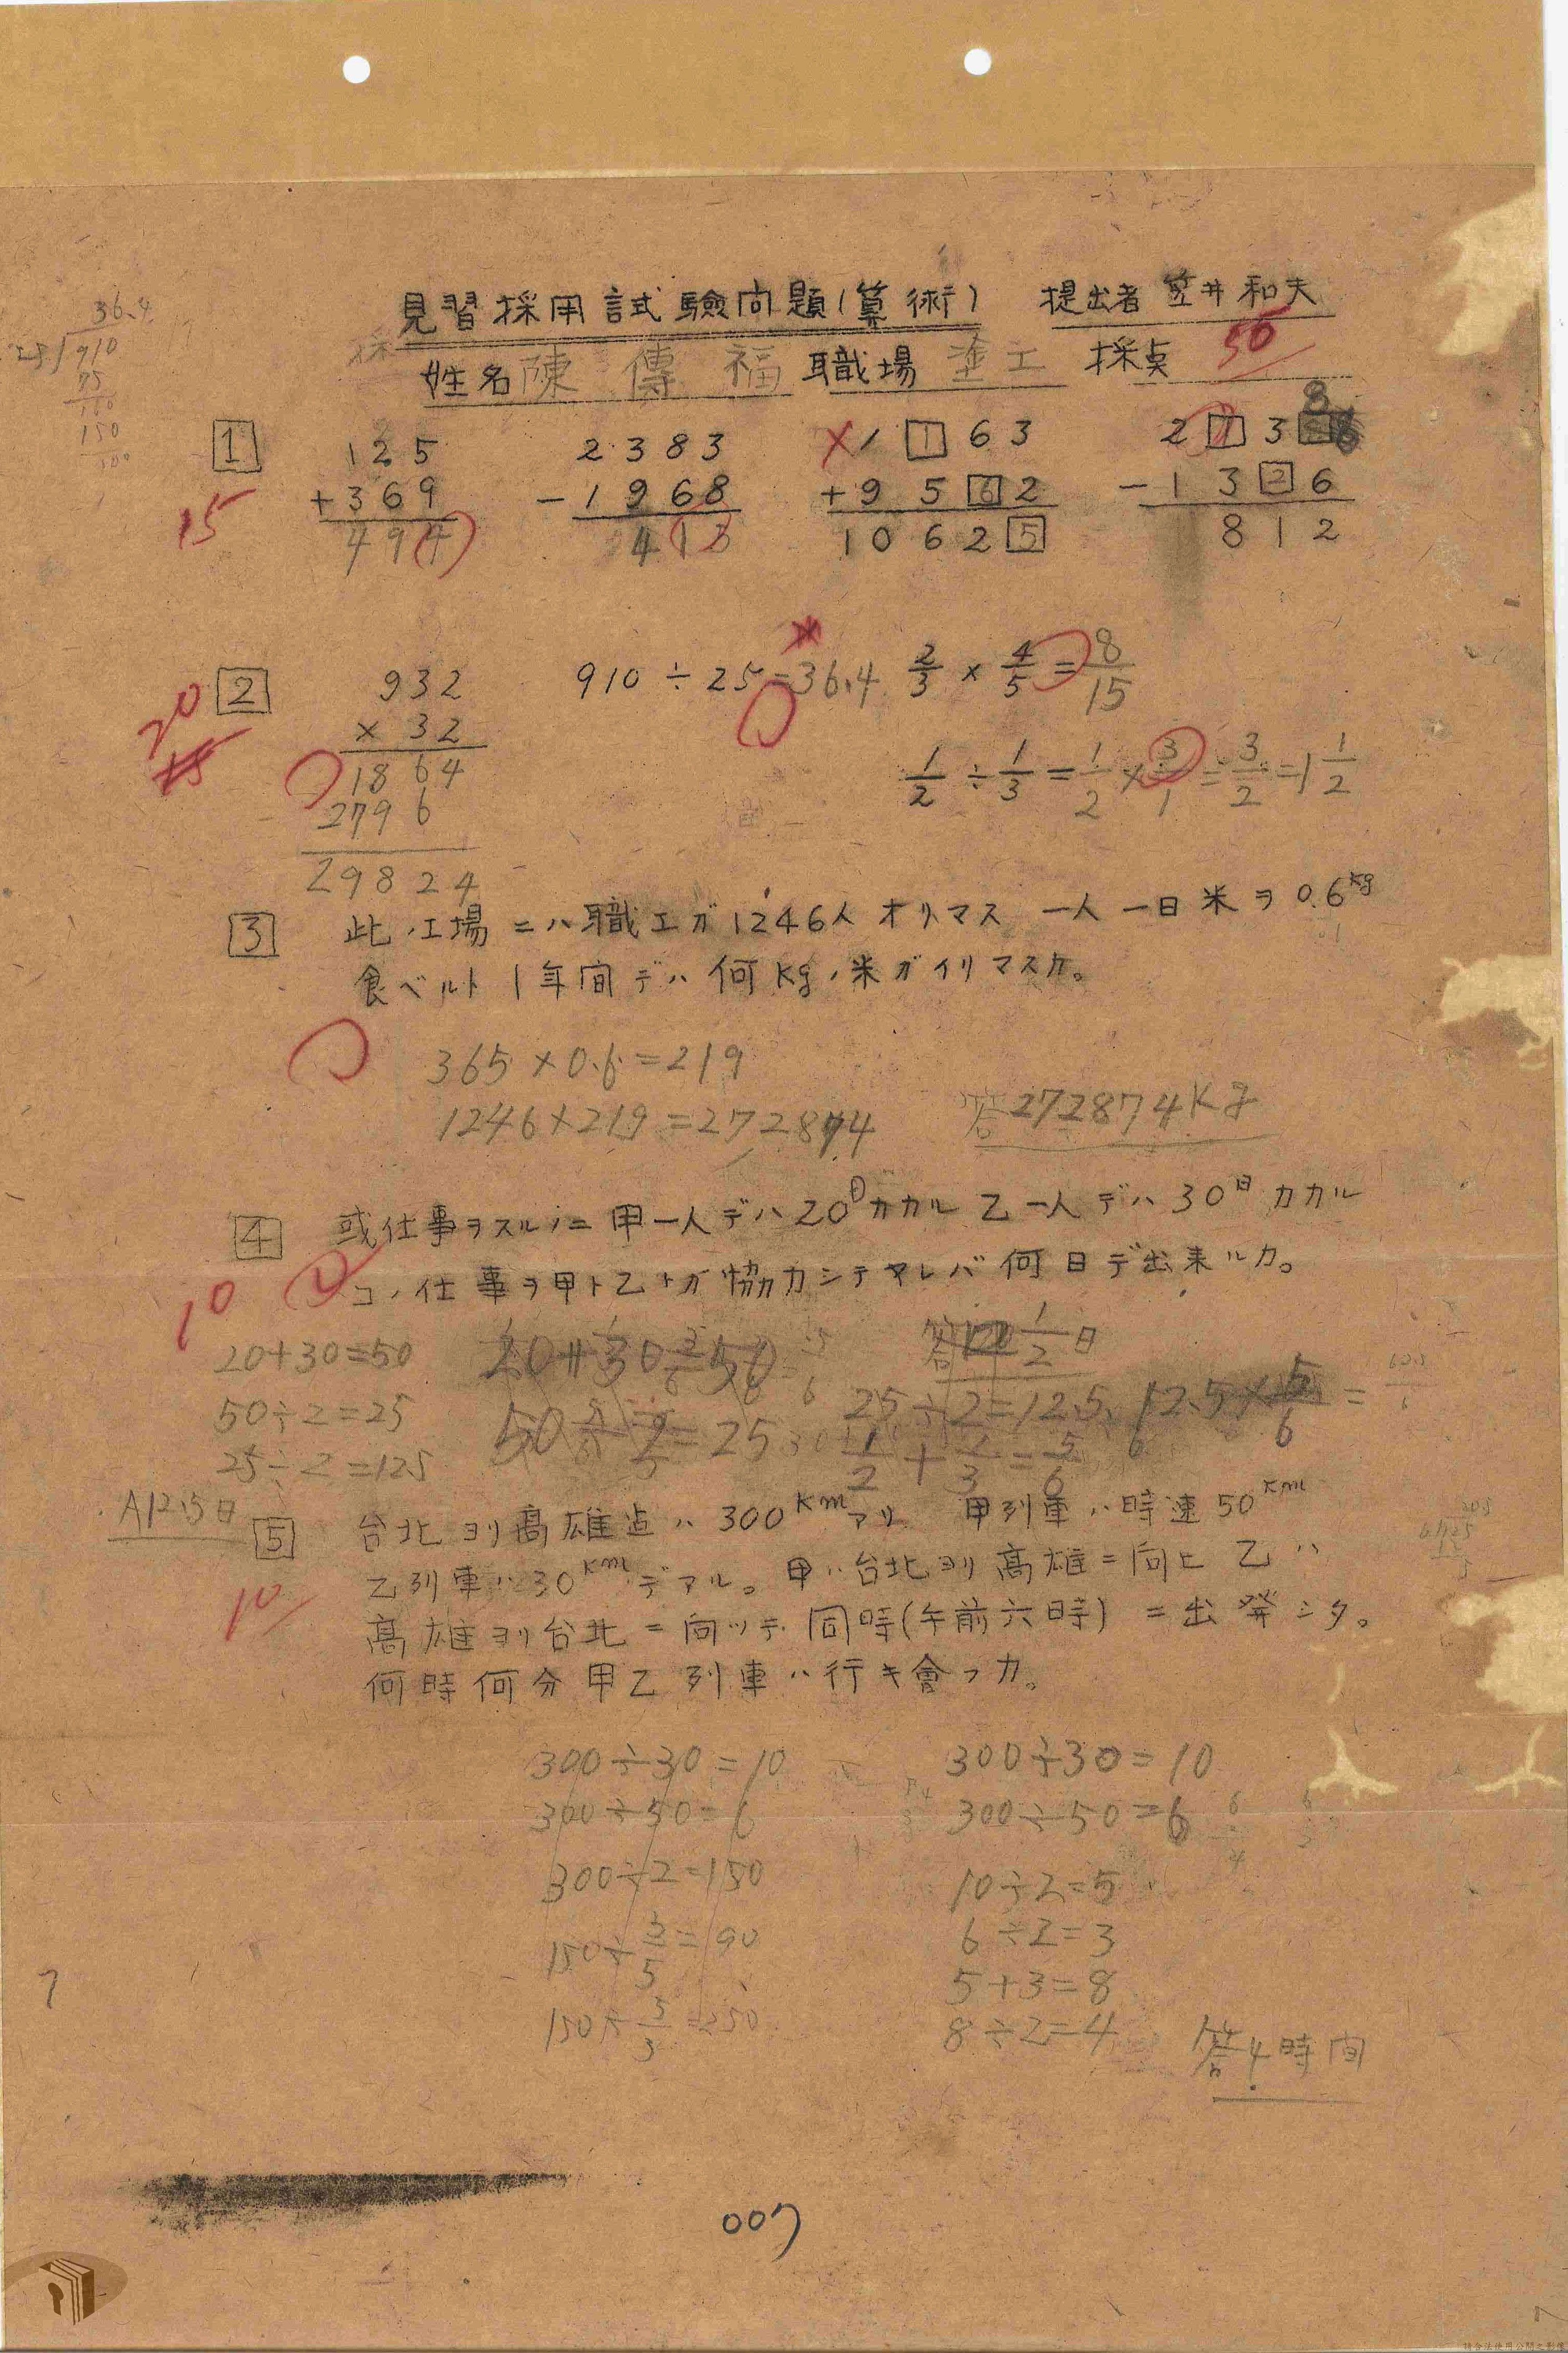 見習採用試驗問題(算術) 提出者 笠井和夫
姓名 陳 傳 福 職場 塗工 採点 50
36.4
25)910
75
150
1
125
+369
494
2383
-1968
413
1 1 63
+9 5 6 2
1062 5
2 1 3 8
-1 3 2 6
812
15
2
932
× 32
1864
2796
29824
910÷25=36.4
2/3 × 4/5 = 8/15
1/2 ÷ 1/3 = 1/2 × 3/1 = 3/2 = 1 1/2
20
15
3 此ノ工場ニハ職工ガ1246人オリマス 一人一日米ヲ0.6kg
食ベルト1年間デハ何kgノ米ガイリマスカ。
365×0.6=219
1246×219=272874 答272874Kg
4 或仕事ヲスルノニ甲一人デハ20日カカル乙一人デハ30日カカル
コノ仕事ヲ甲ト乙トガ協力シテヤレバ何日デ出来ルカ。
10
20+30=50
50÷2=25
25÷2=125
A12.5日
20+30=50
50÷2=25
答 1/2日
25÷2=12.5 12.5×5/6=
1/2+1/3=5/6
5 台北ヨリ高雄迠ハ300Kmアリ 甲列車ハ時速50Km
乙列車ハ30Kmデアル。甲ハ台北ヨリ高雄ニ向ヒ乙ハ
高雄ヨリ台北ニ向ッテ同時(午前六時)ニ出発シタ。
何時何分甲乙列車ハ行キ會フカ。
10
300÷30=10
300÷50=6
300÷2=150
150÷3/5=90
150÷5/3=250
300÷30=10
300÷50=6
10÷2=5
6÷2=3
5+3=8
8÷2=4
答4時間
7
007
請合法使用公開之影像